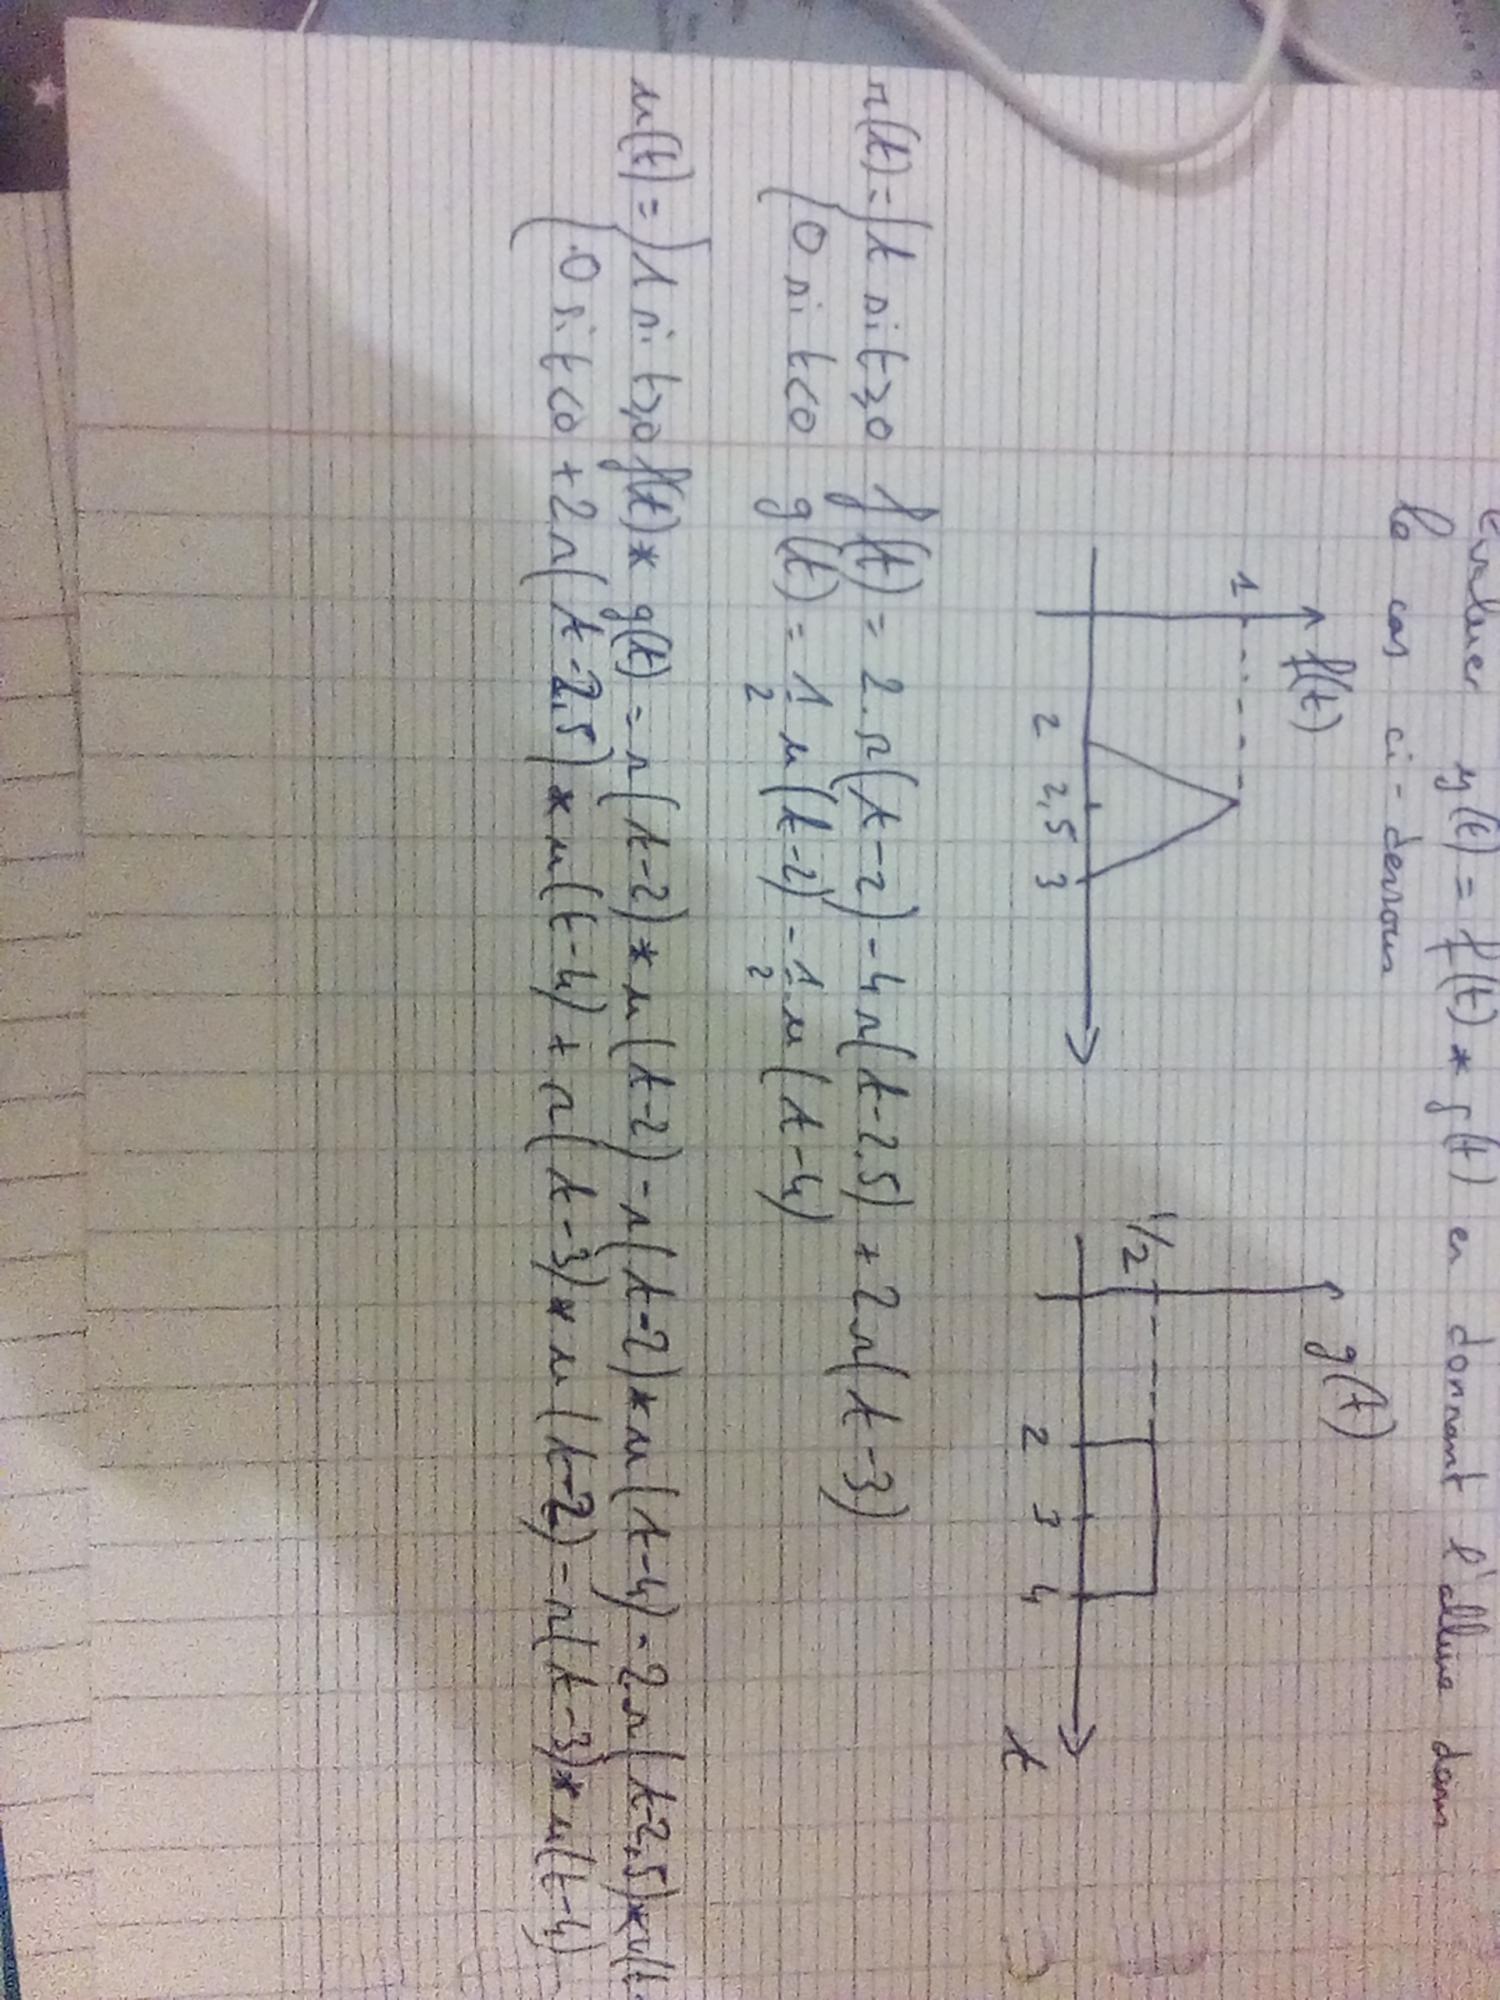 Evaluer y(t) = f(t) * g(t) en donnant l'allure dans
le cas ci-dessous
f(t)
1
2 2,5 3
g(t)
1/2
2 3 4
t
r(t) = { t si t≥0
0 si t<0
f(t) = 2.r(t-2) - 4r(t-2.5) + 2r(t-3)
g(t) = 1/2 u(t-2) - 1/2 u(t-4)
u(t) = { 1 si t≥0
0 si t<0
f(t) * g(t) = r(t-2)*u(t-2) - r(t-2)*u(t-4) - 2r(t-2,5)*u(t-
+ 2r(t-2,5)*u(t-4) + r(t-3)*u(t-2) - r(t-3)*u(t-4)